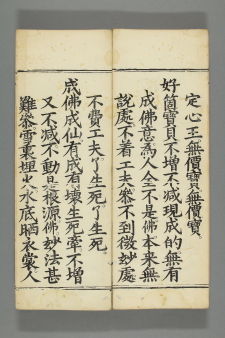 定心王無價寶無價寶
好箇寶貝不增不減現成的無有
成佛意為人全不是佛本来無
說處不着工夫叅不到微妙處
不費工夫了生死了生死
成佛成仙有成有壞生死牽不增
又不減不動是根源佛妙法甚
難叅雪裏埋火水底晒衣裳人